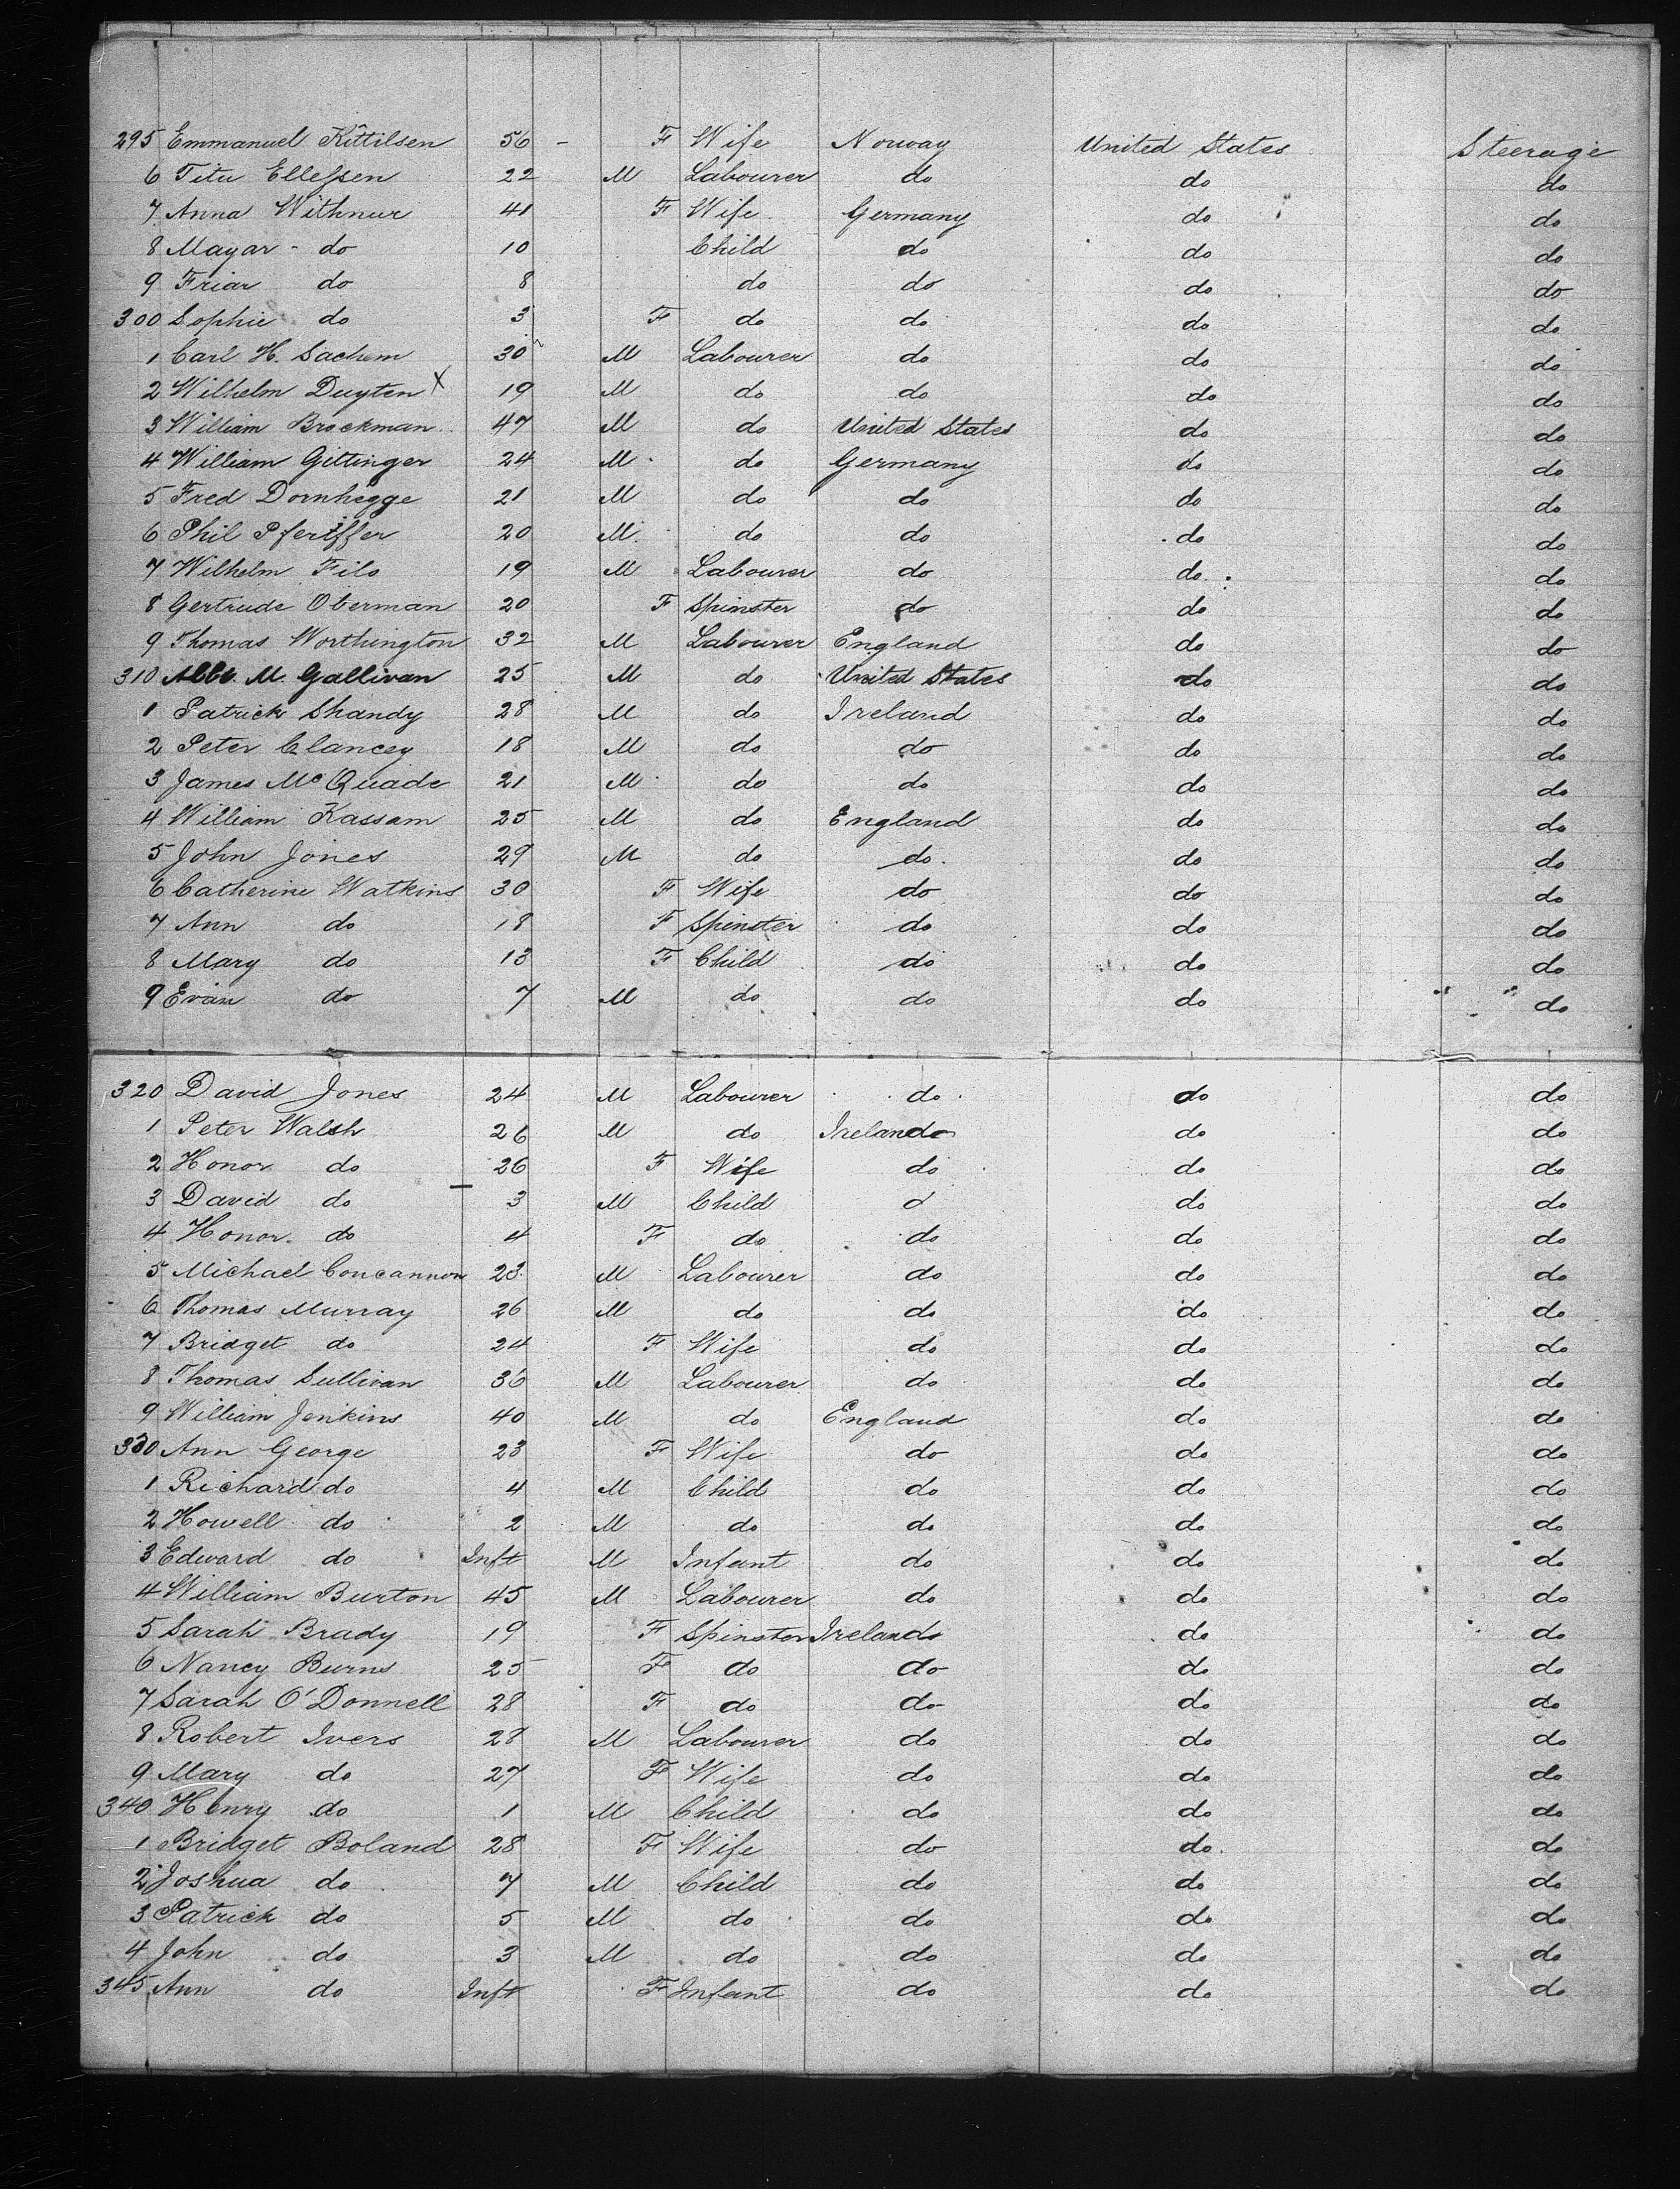 295 Emmanuel Kittilsen 56 - F Wife Norway United States Steerage
6 Titu Ellefsen 22 M Labourer do do do
7 Anna Withnur 41 F Wife Germany do do
8 Mayar - do 10 Child do do do
9 Friar do 8 do do do do
300 Sophie do 3 F do do do do
1 Carl H. Sachem 30 M Labourer do do do
2 Wilhelm Duyten X 19 M do do do do
3 William Brockman 47 M do United States do do
4 William Gittinger 24 M do Germany do do
5 Fred Dornhegge 21 M do do do do
6 Phil Pfeiffer 20 M do do do do
7 Wilhelm Filo 19 M Labourer do do do
8 Gertrude Oberman 20 F Spinster do do do
9 Thomas Worthington 32 M Labourer England do do
310 M. Gallivan 25 M do United States do do
1 Patrick Shandy 28 M do Ireland do do
2 Peter Clancey 18 M do do do do
3 James McQuade 21 M do do do do
4 William Kassam 25 M do England do do
5 John Jones 29 M do do do do
6 Catherine Watkins 30 F Wife do do do
7 Ann do 18 F Spinster do do do
8 Mary do 13 F Child do do do
9 Evan do 7 M do do do do
320 David Jones 24 M Labourer do do do
1 Peter Walsh 26 M do Ireland do do
2 Honor do 26 F Wife do do do
3 David do 3 M Child d do do
4 Honor do 4 F do do do do
5 Michael Concannon 23 M Labourer do do do
6 Thomas Murray 26 M do do do do
7 Bridget do 24 F Wife do do do
8 Thomas Sullivan 36 M Labourer do do do
9 William Jenkins 40 M do England do do
330 Ann George 23 F Wife do do do
1 Richard do 4 M Child do do do
2 Howell do 2 M do do do do
3 Edward do Inft M Infant do do do
4 William Burton 45 M Labourer do do do
5 Sarah Brady 19 F Spinster Ireland do do
6 Nancy Burns 25 F do do do do
7 Sarah O'Donnell 28 F do do do do
8 Robert Ivers 28 M Labourer do do do
9 Mary do 27 F Wife do do do
340 Henry do 1 M Child do do do
1 Bridget Boland 28 F Wife do do do
2 Joshua do 7 M Child do do do
3 Patrick do 5 M do do do do
4 John do 3 M do do do do
345 Ann do Inft F Infant do do do